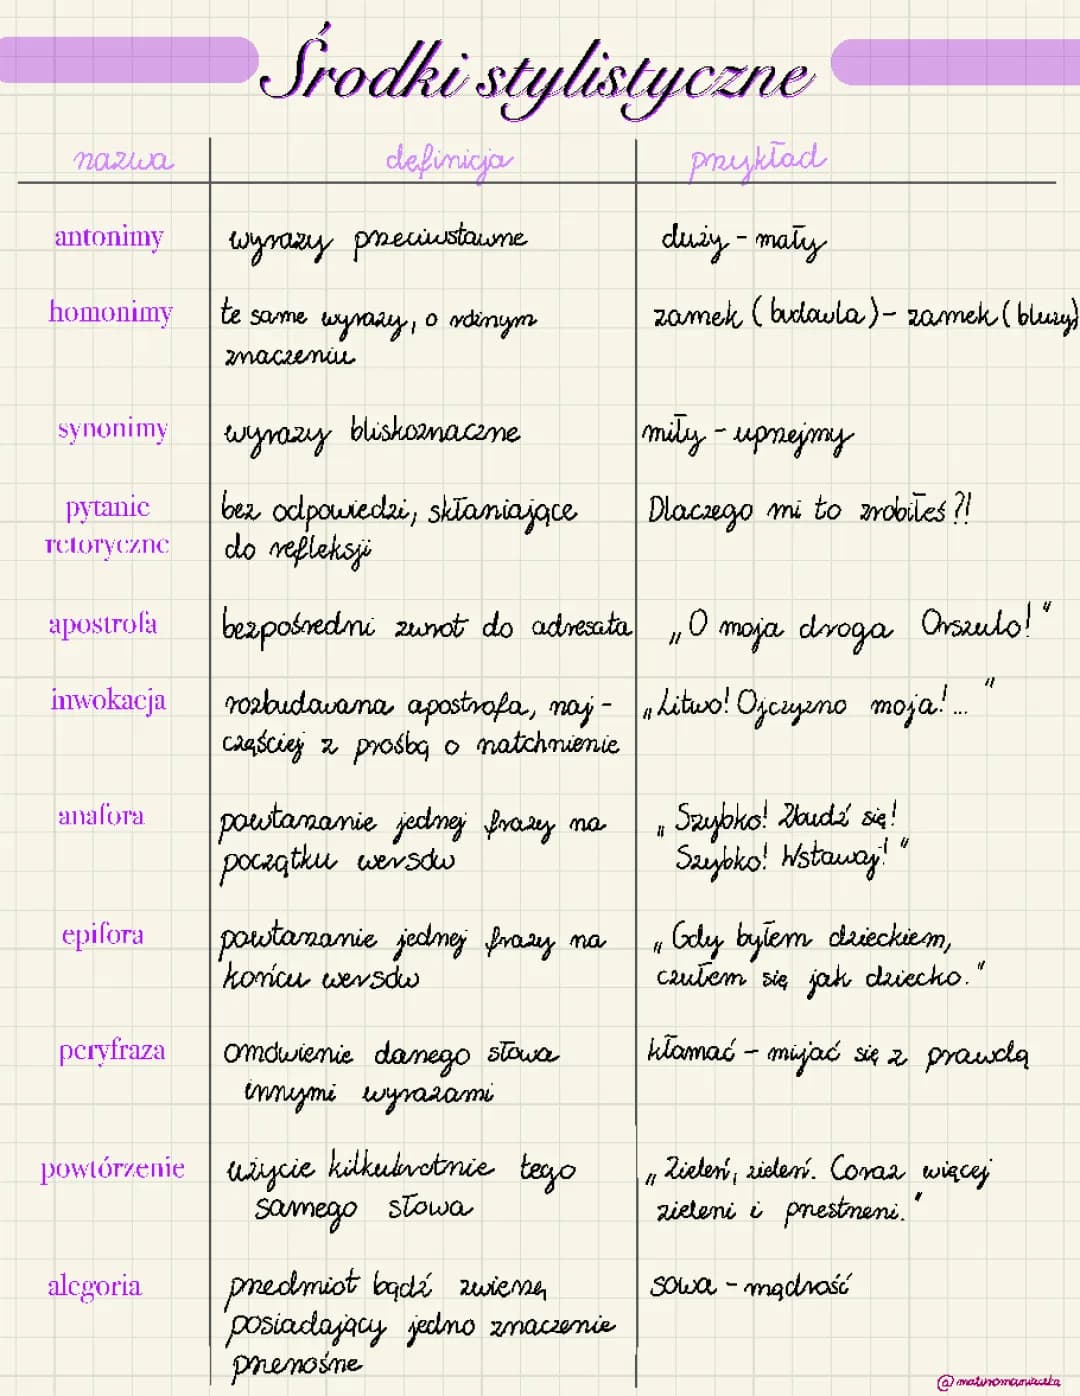 Środki stylistyczne
nazwa definicja przykład
antonimy wyrazy przeciwstawne duży - mały
homonimy te same wyrazy, o różnym zamek (budowla) - zamek (bluzy)
znaczeniu
synonimy wyrazy bliskoznaczne miły - uprzejmy
pytanie bez odpowiedzi, skłaniające Dlaczego mi to zrobiłeś?!
retoryczne do refleksji
apostrofa bezpośredni zwrot do adresata „O moja droga Orszulo!"
inwokacja rozbudowana apostrofa, naj- „Litwo! Ojczyzno moja!..."
częściej z prośbą o natchnienie
anafora powtarzanie jednej frazy na „Szybko! Zbudź się!
początku wersów Szybko! Wstawaj!"
epifora powtarzanie jednej frazy na „Gdy byłem dzieckiem,
końcu wersów czułem się jak dziecko."
peryfraza omówienie danego słowa kłamać - mijać się z prawdą
innymi wyrazami
powtórzenie użycie kilkukrotnie tego „Zieleń, zieleń. Coraz więcej
samego słowa zieleni i przestrzeni."
alegoria przedmiot bądź zwierzę, sowa - mądrość
posiadający jedno znaczenie
przenośne